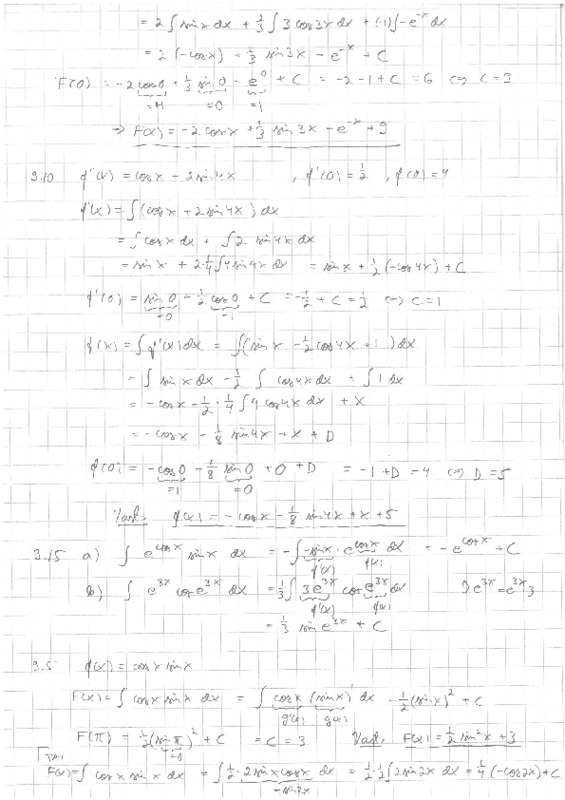 = 2 ∫ sin x dx + 1/3 ∫ 3 cos 3x dx + (-1) ∫ -e^-x dx
= 2 (-cos x) + 1/3 sin 3x - e^-x + C
F(0) = -2 cos 0 + 1/3 sin 0 - e^0 + C = -2 - 1 + C = 6 ⇔ C = 9
=1 =0 =1
⇒ F(x) = -2 cos x + 1/3 sin 3x - e^-x + 9
3.10 f''(x) = cos x - 2 sin 4x , f'(0) = 1/2 , f(0) = 4
f'(x) = ∫ (cos x + 2 sin 4x) dx
= ∫ cos x dx + ∫ 2 sin 4x dx
= sin x + 2·1/4 ∫ 4 sin 4x dx = sin x + 1/2 (-cos 4x) + C
f'(0) = sin 0 - 1/2 cos 0 + C = -1/2 + C = 1/2 ⇔ C = 1
=0 =1
f(x) = ∫ f'(x) dx = ∫ (sin x - 1/2 cos 4x + 1) dx
= ∫ sin x dx - 1/2 ∫ cos 4x dx + ∫ 1 dx
= -cos x - 1/2 · 1/4 ∫ 4 cos 4x dx + x
= -cos x - 1/8 sin 4x + x + D
f(0) = -cos 0 - 1/8 sin 0 + 0 + D = -1 + D = 4 ⇔ D = 5
=1 =0
Vast. f(x) = -cos x - 1/8 sin 4x + x + 5
3.15 a) ∫ e^cos x sin x dx = -∫ -sin x · e^cos x dx = -e^cos x + C
f'(x) f(x)
b) ∫ e^3x cos e^3x dx = 1/3 ∫ 3e^3x cos e^3x dx D e^3x = e^3x 3
f'(x) f(x)
= 1/3 sin e^3x + C
3.5 f(x) = cos x sin x
F(x) = ∫ cos x sin x dx = ∫ cos x (sin x)^1 dx = 1/2 (sin x)^2 + C
g'(x) g(x)
F(π) = 1/2 (sin π)^2 + C = C = 3 Vast. F(x) = 1/2 sin^2 x + 3
=0
TAI
F(x) = ∫ cos x sin x dx = ∫ 1/2 · 2 sin x cos x dx = 1/2 · 1/2 ∫ 2 sin 2x dx = 1/4 (-cos 2x) + C
= sin 2x